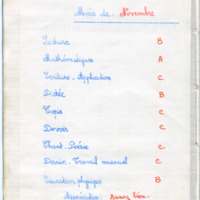 Mois de : Novembre
Lecture B
Mathématiques A
Ecriture - Application C
Dictée B
Copie C
Devoirs C
Chant - Poésie C
Dessin - Travail manuel C
Education physique B
Appréciation : Assez bien